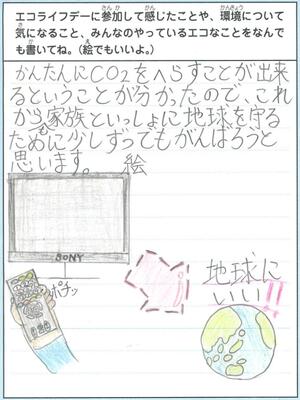 エコライフデーに参加して感じたことや、環境について
気になること、みんなのやっているエコなことをなんで
も書いてね。（絵でもいいよ。）
かんたんにCO2をへらすことが出来
るということが分かったので、これ
からも家族といっしょに地球を守る
ために少しずつでもがんばろうと
思います。 絵
SONY
ポチッ
地球に
いい!!